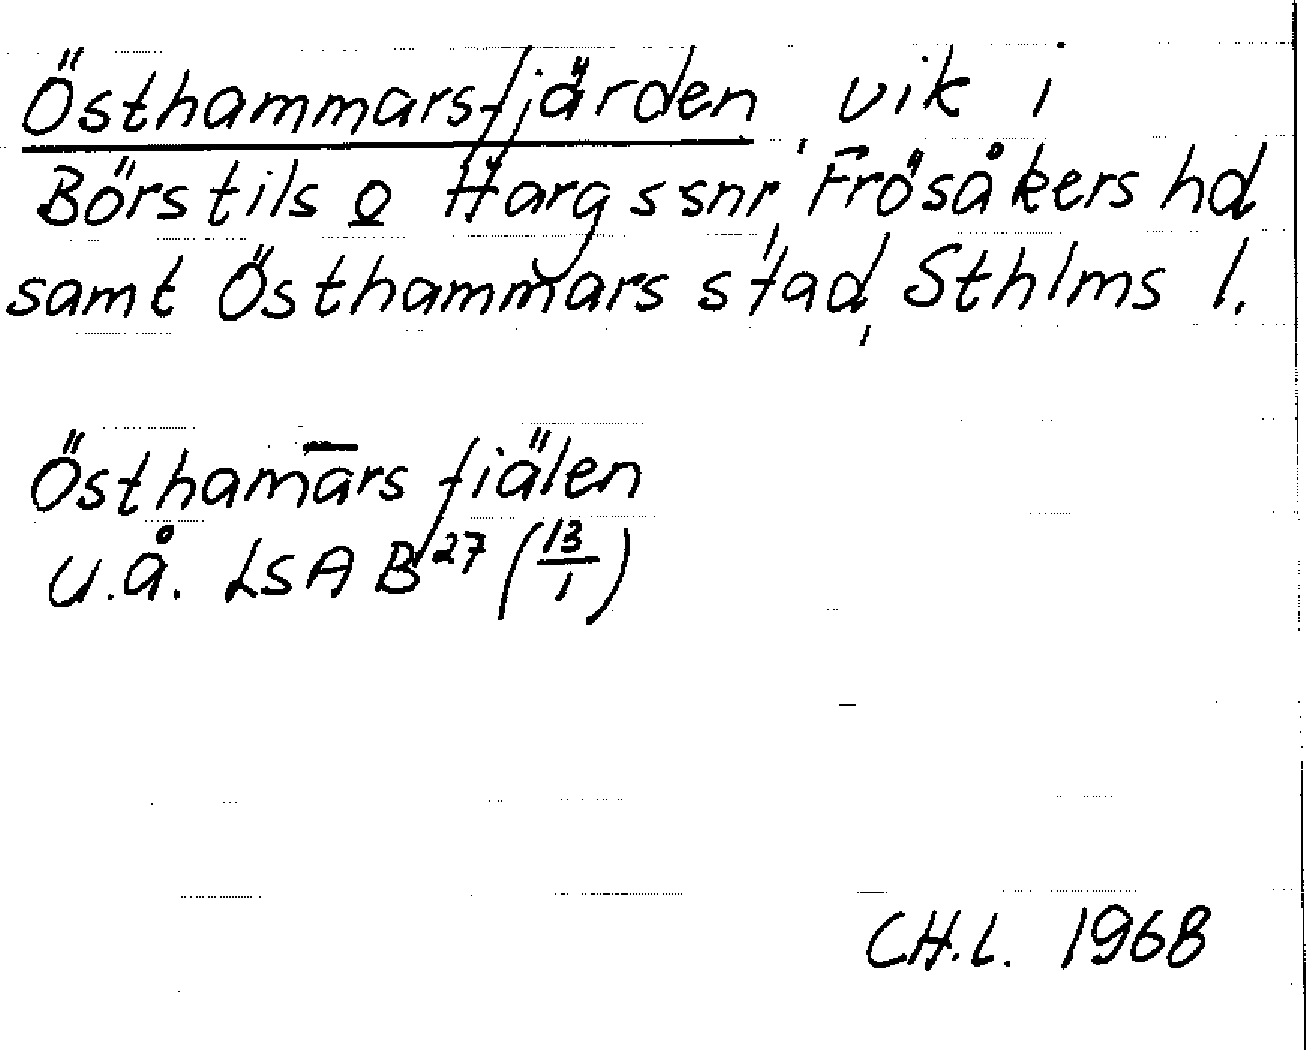 Östhammarsfjärden, vik i
Börstils o Hargs snr, Frösåkers hd
samt Östhammars stad, Sthlms l.
Östham̄ars fiälen
u.å. LSA B²⁷ (13/1)
CH.L. 1968